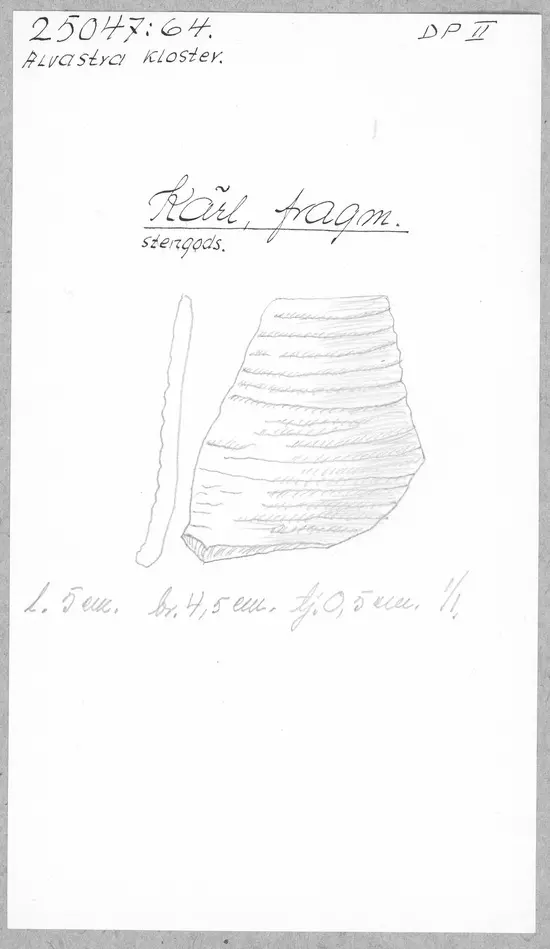 25047:64. DP II
Alvastra kloster.
Kärl, fragm.
stengods.
l. 5 cm. br. 4,5 cm. tj. 0,5 cm. 1/1.